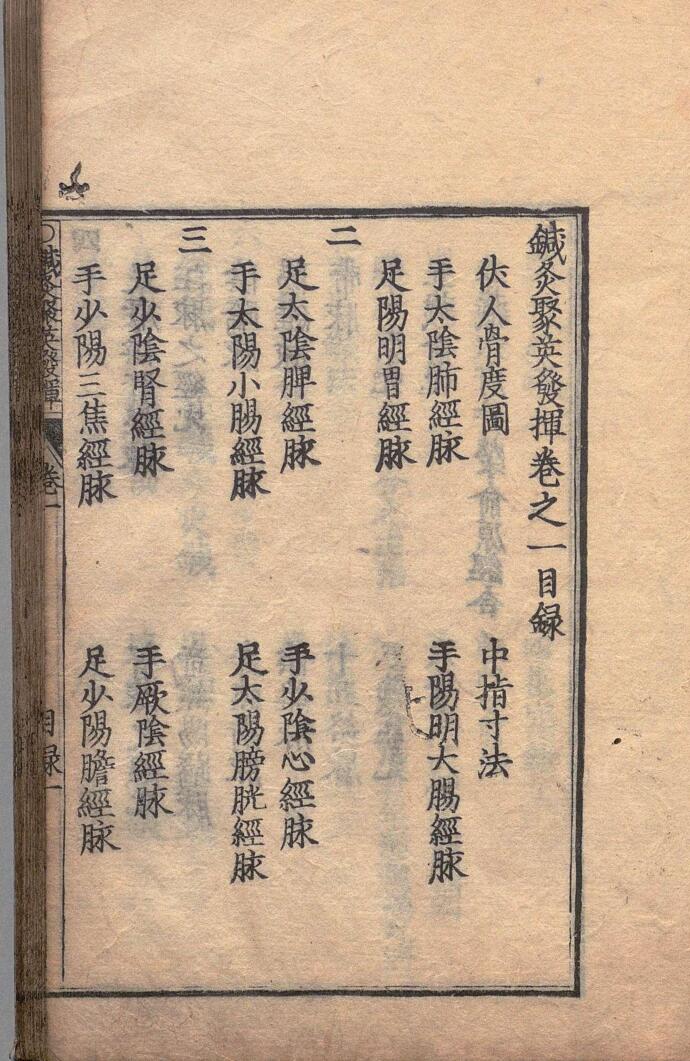 鍼灸聚英發揮卷之一目録
伏人骨度圖 中指寸法
手太陰肺經脉 手陽明大腸經脉
足陽明胃經脉
二
足太陰脾經脉 手少陰心經脉
手太陽小腸經脉 足太陽膀胱經脉
三
足少陰腎經脉 手厥陰經脉
手少陽三焦經脉 足少陽膽經脉
鍼灸聚英發揮 卷一 目録一